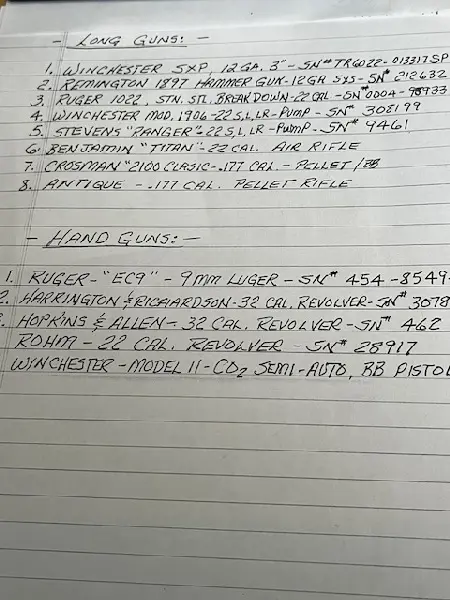 - LONG GUNS: -
1. WINCHESTER SXP, 12 GA. 3" - SN# TRG022-013317SP
2. REMINGTON 1897 HAMMER GUN - 12GA SXS - SN# 212632
3. RUGER 1022, STN. STL. BREAKDOWN - 22 CAL - SN# 0004 -
4. WINCHESTER MOD. 1906 - 22 S, L, LR - PUMP - SN# 308179
5. STEVENS "RANGER" - 22 S, L, LR - PUMP - SN# 9461
6. BENJAMIN "TITAN" - 22 CAL. AIR RIFLE
7. CROSMAN "2100 CLASIC - .177 CAL. - PELLET /BB
8. ANTIQUE - .177 CAL. PELLET RIFLE
- HAND GUNS: -
1. RUGER - "EC9" - 9MM LUGER - SN# 454-8549-
2. HARRINGTON & RICHARDSON - 32 CAL. REVOLVER - SN# 3078
. HOPKINS & ALLEN - 32 CAL. REVOLVER - SN# 462
ROHM - 22 CAL. REVOLVER - SN# 28917
WINCHESTER - MODEL 11 - CO2 SEMI-AUTO, BB PISTOL